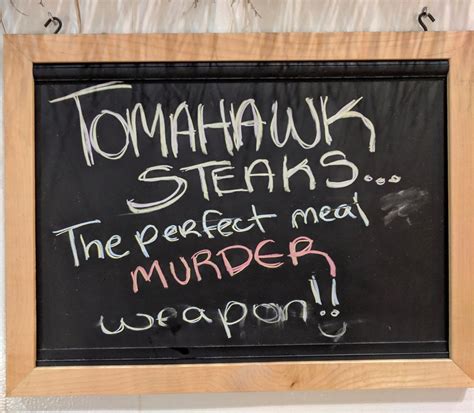 TOMAHAWK
STEAKS...
The perfect meal
MURDER
weapon!!